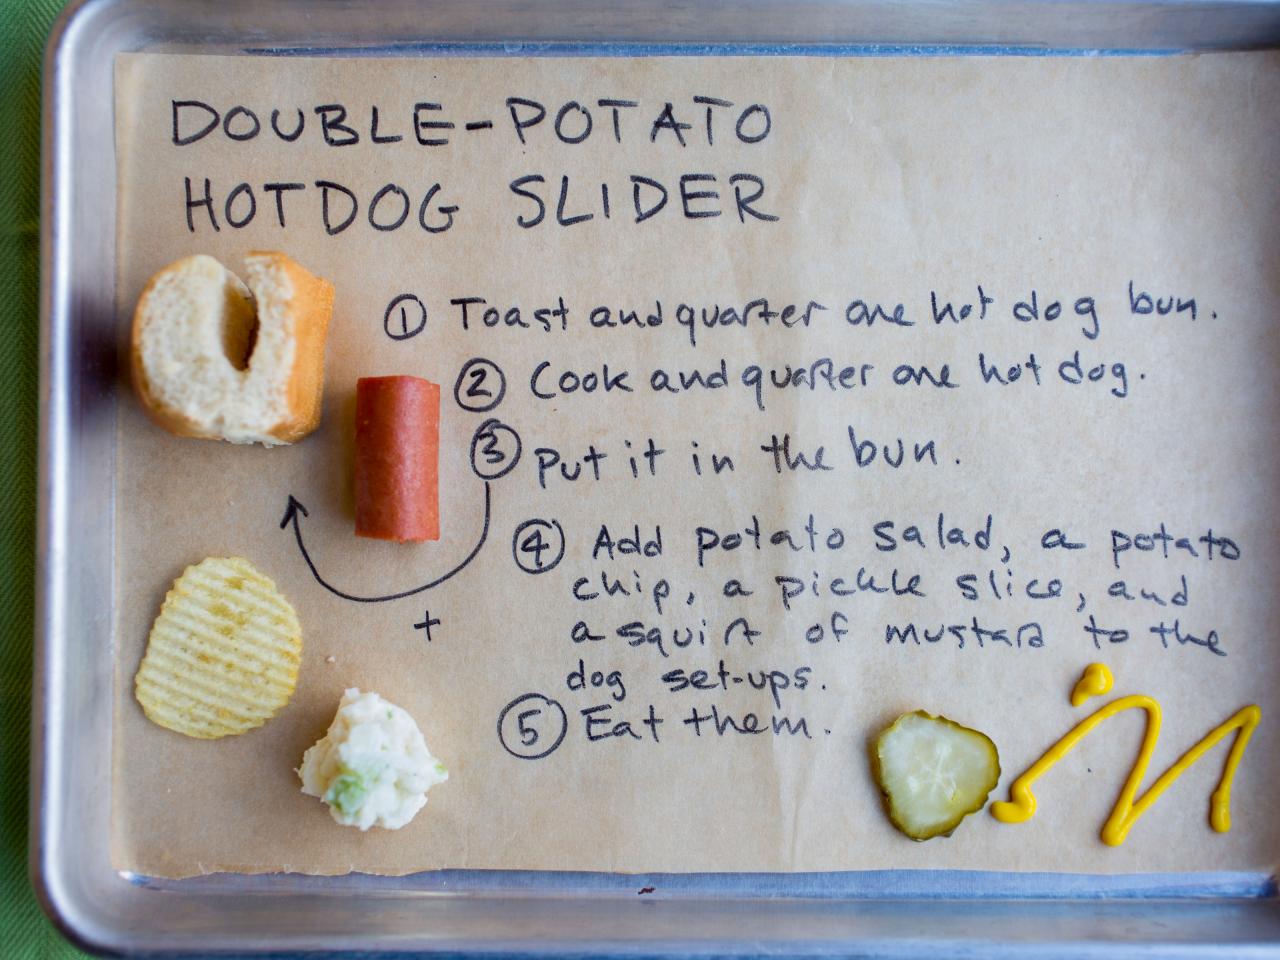 DOUBLE-POTATO
HOTDOG SLIDER
① Toast and quarter one hot dog bun.
② Cook and quarter one hot dog.
③ Put it in the bun.
+
④ Add potato salad, a potato
chip, a pickle slice, and
a squirt of mustard to the
dog set-ups.
⑤ Eat them.